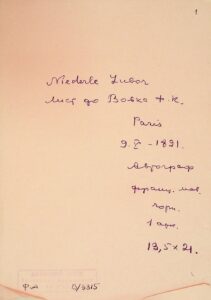 1
Niederle Lubor
Лист до Вовка Ф. К.
Paris
9. X - 1891.
Автограф
франц. мов.
чорн.
1 арк.
13,5 × 21.
Ф-4 О/3315